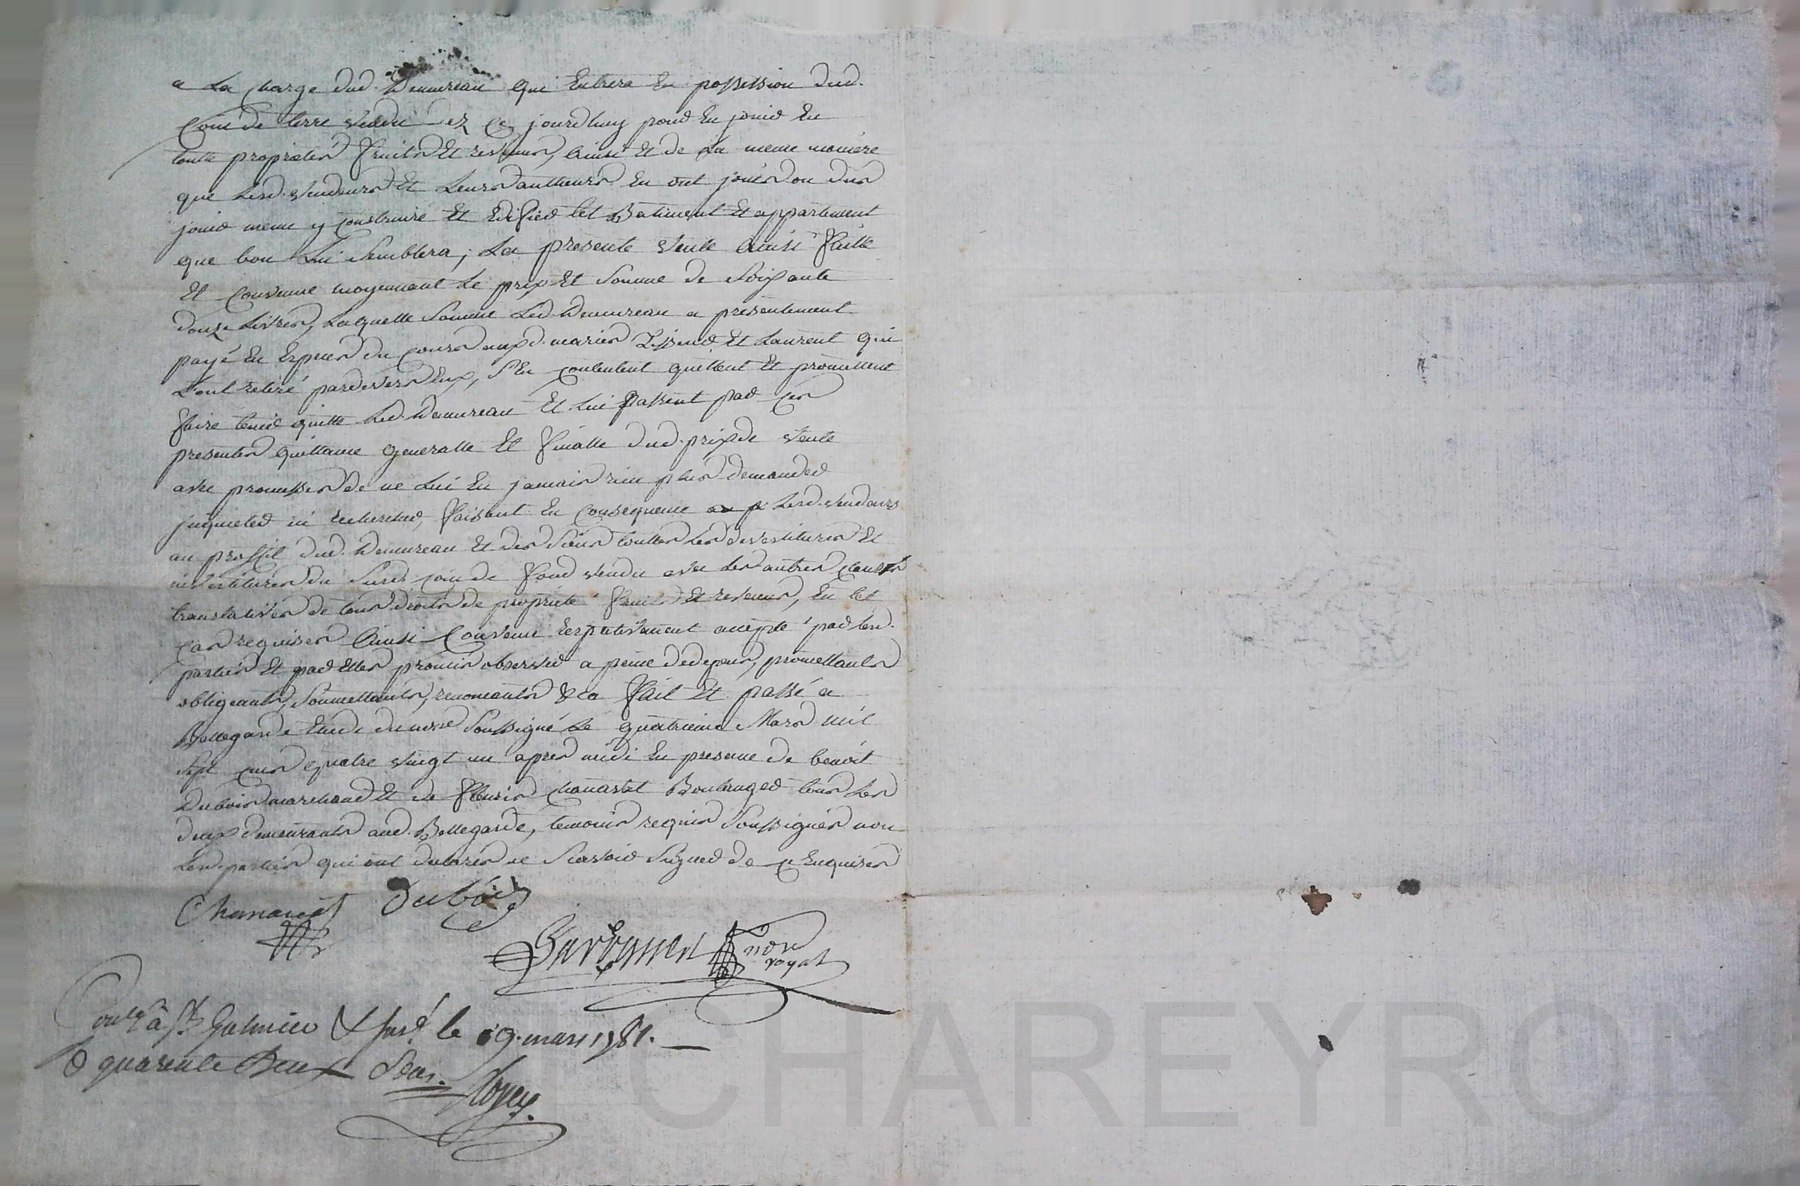 a La charge dud. Demureau qui Entrera En possession dud.
Coin de terre vendu dez Ce jourdhuy pour En jouir En
toutte proprieté fruits Et revenus, Ainsi Et de La meme maniere
que Lesd. vendeurs Et Leurs autheurs En ont jouis ou dus
jouir meme y construire Et Edifier tel Batiment Et appartement
que bon Lui Semblera; La presente vente Ainsi faitte
Et Convenue moyennant Le prix Et Somme de Soixante
douze Livres, Laquelle Somme Led. Demureau a presentement
payé En Especes du Cours auxd. mariés Et Laurent qui
L'ont retiré pardevers Eux, S'En contentent quittent Et promettent
faire tenir quitte Led. Demureau Et Lui Passent par Ces
presentes quittance generalle Et finalle dud. prix de vente
avec promesses de ne Lui En jamais rien plus demander
inquieter ni rechercher, faisant En Consequence Lesd. vendeurs
au proffit dud. Demureau Et des Siens touttes Les devestitures Et
investitures du Susd. coin de fond vendu avec Les autres clauses
translatives de tous droits de proprieté fruits Et revenus, En tel
cas requises Ainsi Convenu respectivement accepté par Lesd.
parties Et par Elles promis observer a peine de depens, promettants
obligeants, Soumettants, renonceants &ca fait Et passé a
Bellegarde Etude du no.re Soussigné Le quatrieme Mars mil
Sept cens quatre vingt un apres midi En presence de benoit
Dubois marchand Et de fleuris Chanavat Boulanger tous Les
deux demeurants aud. Bellegarde, temoins requis Soussignés non
Lesd. parties qui ont declarés ne Scavoir Signer de ce Enquises
Chanavat Dubois
no.re
royal
Con.lé à St Galmier & Ins.é le 19. mars 1781. —
R quarente Deux Sous.